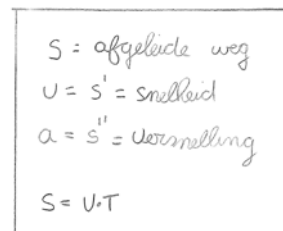 S = afgeleide weg
v = s' = snelheid
a = s'' = versnelling
S = v.T